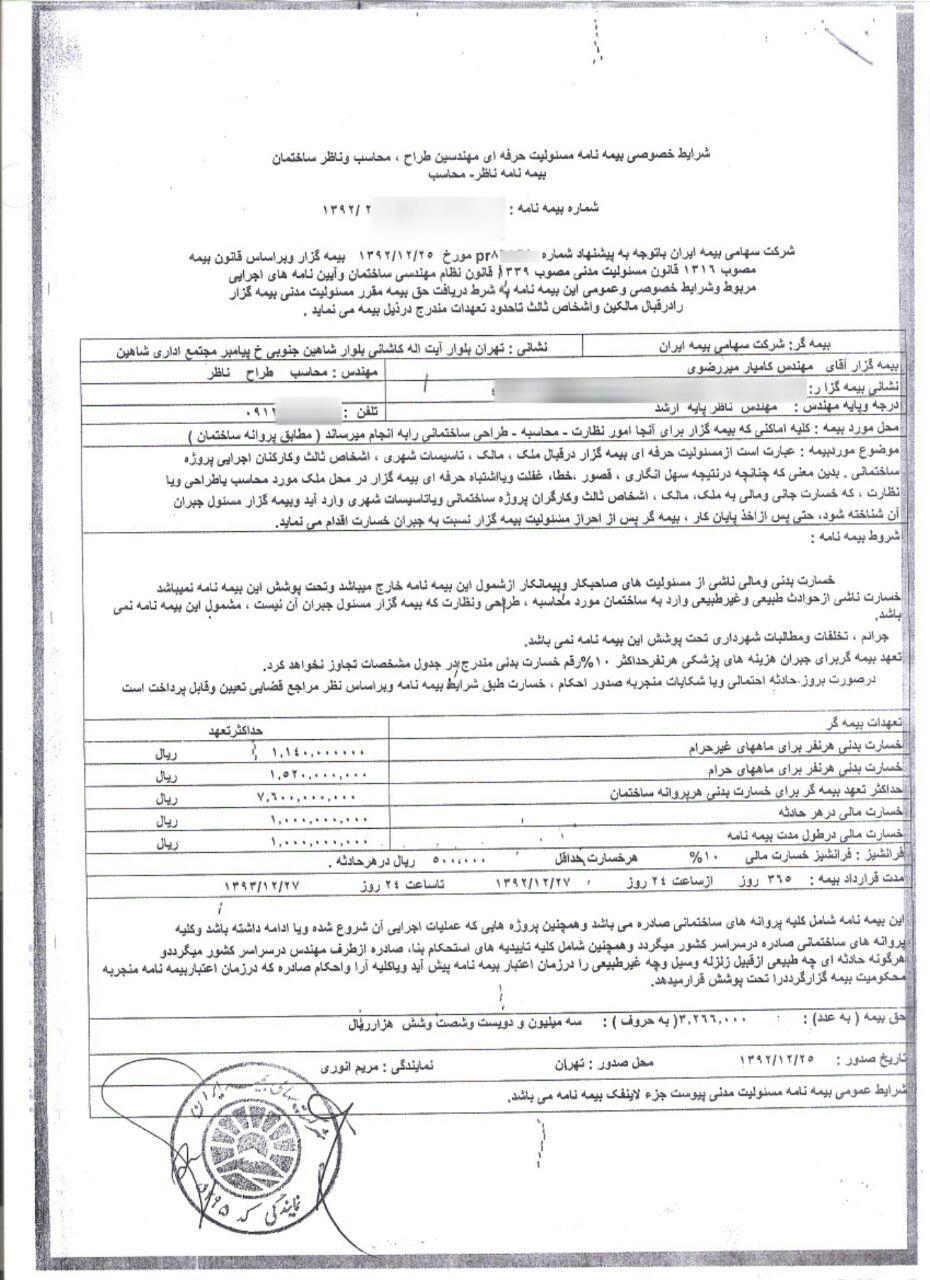 شرایط خصوصی بیمه نامه مسئولیت حرفه ای مهندسین طراح ، محاسب وناظر ساختمان
بیمه نامه ناظر- محاسب
شماره بیمه نامه : ۱۳۹۲/ ۲
شرکت سهامی بیمه ایران باتوجه به پیشنهاد شماره pr۸ مورخ ۱۳۹۲/۱۲/۲۵ بیمه گزار وبراساس قانون بیمه
مصوب ۱۳۱۶ قانون مسئولیت مدنی مصوب ۱۳۳۹ قانون نظام مهندسی ساختمان وآیین نامه های اجرایی
مربوط وشرایط خصوصی وعمومی این بیمه نامه به شرط دریافت حق بیمه مقرر مسئولیت مدنی بیمه گزار
رادرقبال مالکین واشخاص ثالث تاحدود تعهدات مندرج درذیل بیمه می نماید .
بیمه گر: شرکت سهامی بیمه ایران نشانی : تهران بلوار آیت اله کاشانی بلوار شاهین جنوبی خ پیامبر مجتمع اداری شاهین
بیمه گزار آقای مهندس کامیار میررضوی مهندس : محاسب طراح ناظر
نشانی بیمه گزا ر:
درجه وپایه مهندس : مهندس ناظر پایه ارشد تلفن : ۰۹۱۱
محل مورد بیمه : کلیه اماکنی که بیمه گزار برای آنجا امور نظارت - محاسبه - طراحی ساختمانی رابه انجام میرساند ( مطابق پروانه ساختمان )
موضوع موردبیمه : عبارت است ازمسئولیت حرفه ای بیمه گزار درقبال ملک ، مالک ، تاسیسات شهری ، اشخاص ثالث وکارکنان اجرایی پروژه
ساختمانی . بدین معنی که چنانچه درنتیجه سهل انگاری ، قصور ،خطا، غفلت ویااشتباه حرفه ای بیمه گزار در محل ملک مورد محاسب یاطراحی ویا
نظارت ، که خسارت جانی ومالی به ملک، مالک ، اشخاص ثالث وکارگران پروژه ساختمانی ویاتاسیسات شهری وارد آید وبیمه گزار مسئول جبران
آن شناخته شود، حتی پس ازاخذ پایان کار ، بیمه گر پس از احراز مسئولیت بیمه گزار نسبت به جبران خسارت اقدام می نماید.
شروط بیمه نامه :
خسارت بدنی ومالی ناشی از مسئولیت های صاحبکار وپیمانکار ازشمول این بیمه نامه خارج میباشد وتحت پوشش این بیمه نامه نمیباشد
خسارت ناشی ازحوادث طبیعی وغیرطبیعی وارد به ساختمان مورد محاسبه ، طراحی ونظارت که بیمه گزار مسئول جبران آن نیست ، مشمول این بیمه نامه نمی
باشد.
جرائم ، تخلفات ومطالبات شهرداری تحت پوشش این بیمه نامه نمی باشد.
تعهد بیمه گربرای جبران هزینه های پزشکی هرنفرحداکثر ۱۰%رقم خسارت بدنی مندرج در جدول مشخصات تجاوز نخواهد کرد.
درصورت بروز حادثه احتمالی ویا شکایات منجربه صدور احکام ، خسارت طبق شرایط بیمه نامه وبراساس نظر مراجع قضایی تعیین وقابل پرداخت است
تعهدات بیمه گر حداکثرتعهد
خسارت بدنی هرنفر برای ماههای غیرحرام ۱,۱٤۰,۰۰۰,۰۰۰ ریال
خسارت بدنی هرنفر برای ماههای حرام ۱,۵۲۰,۰۰۰,۰۰۰ ریال
حداکثر تعهد بیمه گر برای خسارت بدنی هرپروانه ساختمان ۷,٦۰۰,۰۰۰,۰۰۰ ریال
خسارت مالی درهر حادثه ۱,۰۰۰,۰۰۰,۰۰۰ ریال
خسارت مالی درطول مدت بیمه نامه ۱,۰۰۰,۰۰۰,۰۰۰ ریال
فرانشیز : فرانشیز خسارت مالی ۱۰% هرخسارت حداقل ۵۰۰,۰۰۰ ریال درهرحادثه .
مدت قرارداد بیمه : ۳٦۵ روز ازساعت ۲٤ روز ۱۳۹۲/۱۲/۲۷ تاساعت ۲٤ روز ۱۳۹۳/۱۲/۲۷
این بیمه نامه شامل کلیه پروانه های ساختمانی صادره می باشد وهمچنین پروژه هایی که عملیات اجرایی آن شروع شده ویا ادامه داشته باشد وکلیه
پروانه های ساختمانی صادره درسراسر کشور میگردد وهمچنین شامل کلیه تاییدیه های استحکام بنا، صادره ازطرف مهندس درسراسر کشور میگرددو
هرگونه حادثه ای چه طبیعی ازقبیل زلزله وسیل وچه غیرطبیعی را درزمان اعتبار بیمه نامه پیش آید ویاکلیه آرا واحکام صادره که درزمان اعتباربیمه نامه منجربه
محکومیت بیمه گزارگرددرا تحت پوشش قرارمیدهد.
حق بیمه ( به عدد) : ۳,۲٦٦,۰۰۰( به حروف ) : سه میلیون و دویست وشصت وشش هزارریال
تاریخ صدور : ۱۳۹۲/۱۲/۲۵ محل صدور : تهران نمایندگی : مریم انوری
شرایط عمومی بیمه نامه مسئولیت مدنی پیوست جزء لاینفک بیمه نامه می باشد.
شرکت سهامی بیمه ایران
نمایندگی کد